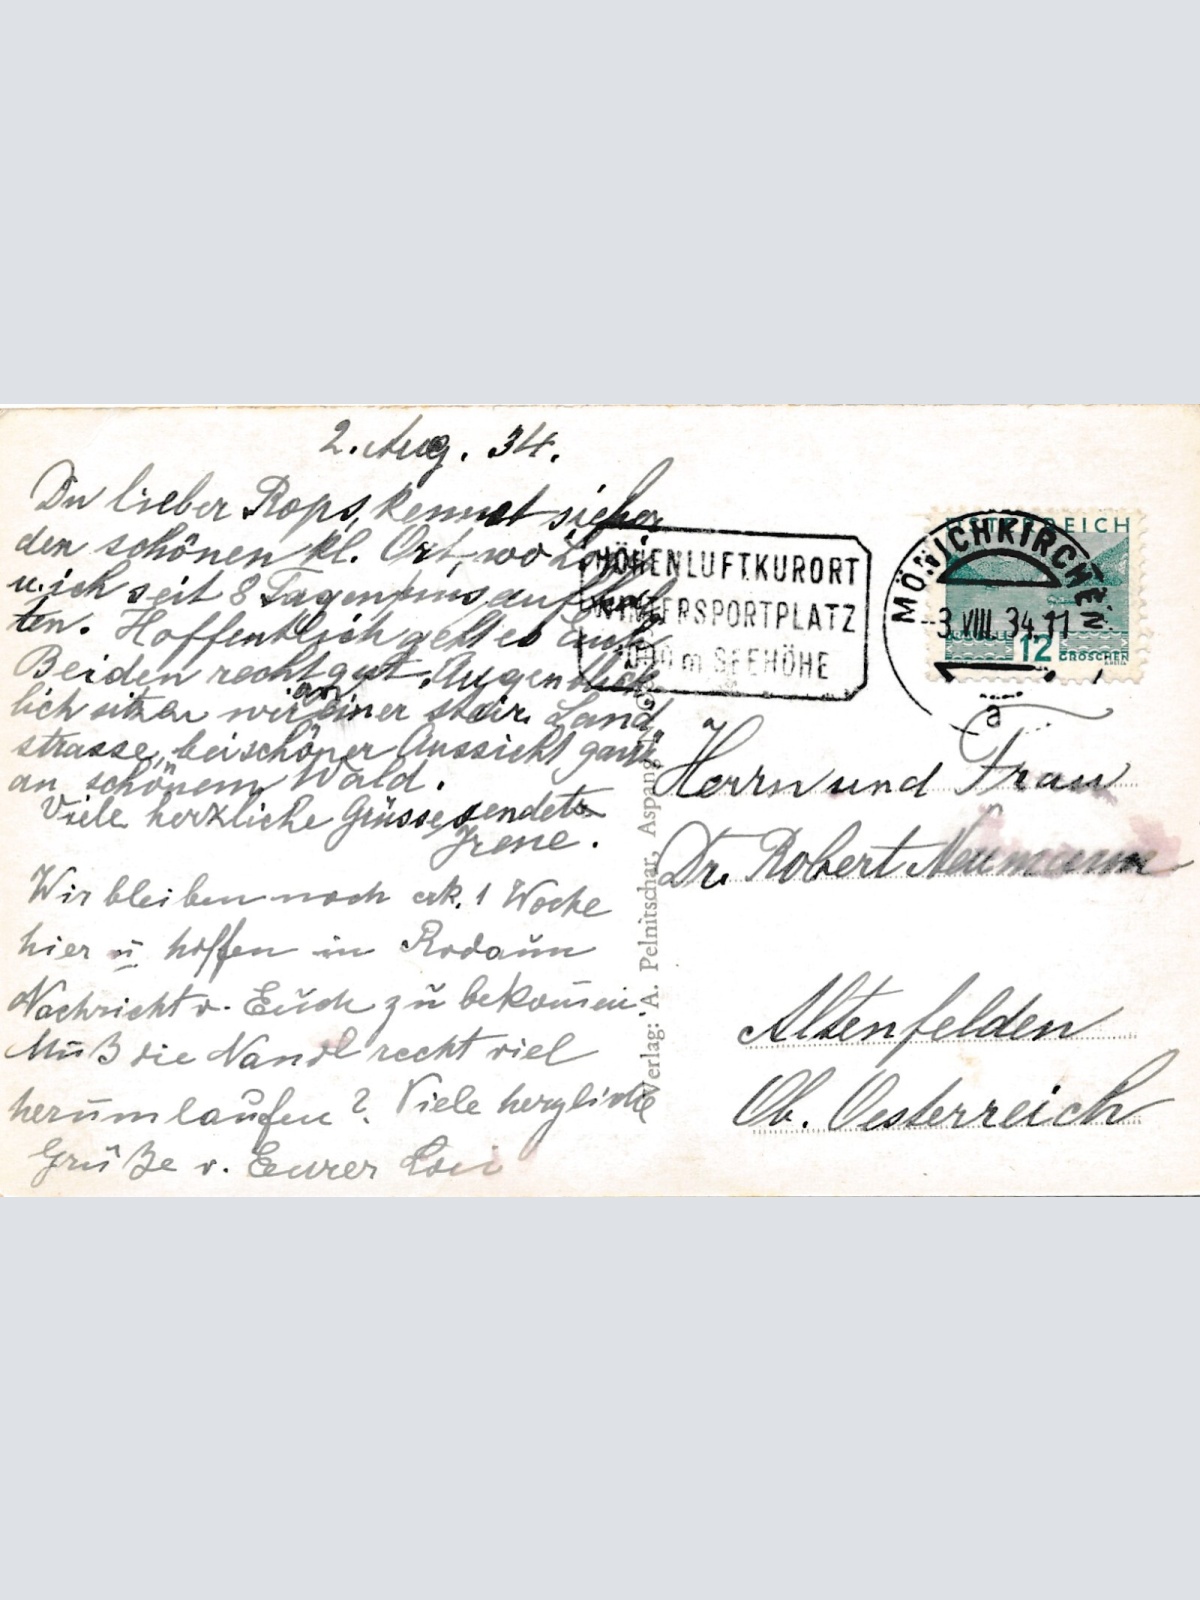 2. Aug. 34.
Du lieber Rops, kennst sicher
den schönen kl. Ort, wo Loisi
u. ich seit 8 Tagen uns aufhal
ten. Hoffentlich geht es Euch
Beiden recht gut. Augenblick
lich sitzen wir an einer steir. Land
strasse, bei schöner Aussicht ganz
an schönem Wald.
Viele herzliche Grüsse sendet
Irene.
Wir bleiben noch 1 Woche
hier u hoffen in Rodaun
Nachricht v. Euch zu bekommen.
Muß die Nandl recht viel
herumlaufen? Viele herzliche
Grüße v. Eurer Loisi
Verlag: A. Pelnitschar, Aspang
HÖHENLUFTKURORT
WINTERSPORTPLATZ
1000 m SEEHÖHE
ÖSTERREICH
12
GROSCHEN
MÖNICHKIRCHEN
3 VIII 34 11
a
Herrn und Frau
Dr. Robert Neumann
Altenfelden
Ob. Oesterreich